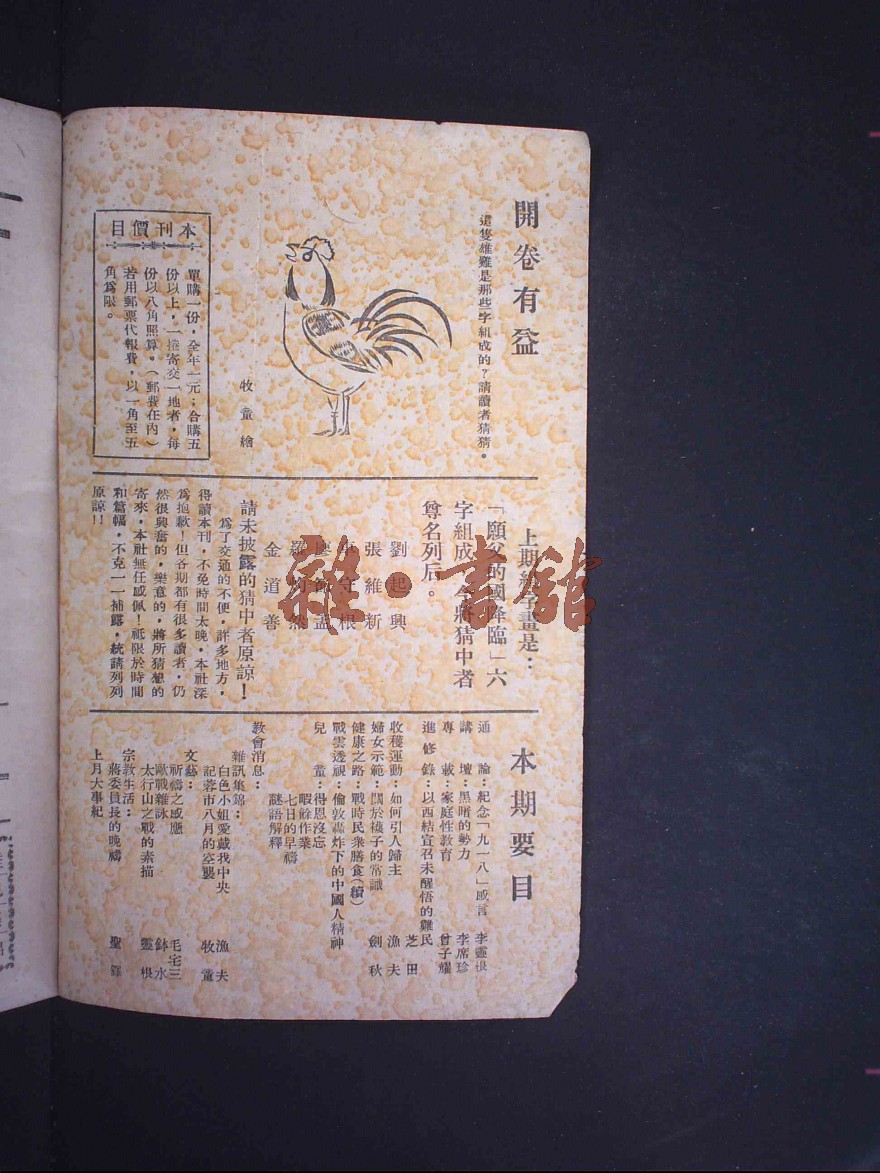 開卷有益
這隻雄雞是那些字組成的？請讀者猜猜。
牧童繪
本刊價目
單購一份，全年一元；合購五
份以上，一捲寄交一地者，每
份以八角照算。（郵費在內）
若用郵票代報費，以一角至五
角爲限。
上期
字畫是：
「願父的國降臨」六
字組成，今將猜中者
尊名列后。
劉起興
張維新
守根
廖
孟
羅
然
金道善
請未披露的猜中者原諒！
爲了交通的不便，許多地方，
得讀本刊，不免時間太晚，本社深
爲抱歉！但各期都有很多讀者，仍
然很興奮的，樂意的，將所猜想的
寄來，本社無任感佩！祇限於時間
和篇幅，不克一一補露，統請列列
原諒！！
本期要目
通論：紀念「九一八」感言 李靈根
講壇：黑暗的勢力 李席珍
專載：家庭性教育 曾子耀
進修錄：以西結宣召未醒悟的難民 芝田
收穫運動：如何引人歸主 漁夫
婦女示範：關於襪子的常識 劍秋
健康之路：戰時民衆膳食(續)
戰雲透視：倫敦轟炸下的中國人精神
兒童：得恩沒忘
暇餘作業
七日的早禱
謎語解釋
教會消息：
雜訊集錦：
白色小姐愛戴我中央 漁夫
記蓉市八月的空襲 牧童
文藝：
祈禱之感應 毛宅三
歐戰雜詠 鉢水
太行山之戰的素描 靈根
宗教生活：
蔣委員長的晚禱 聖
上月大事紀
雜·書館